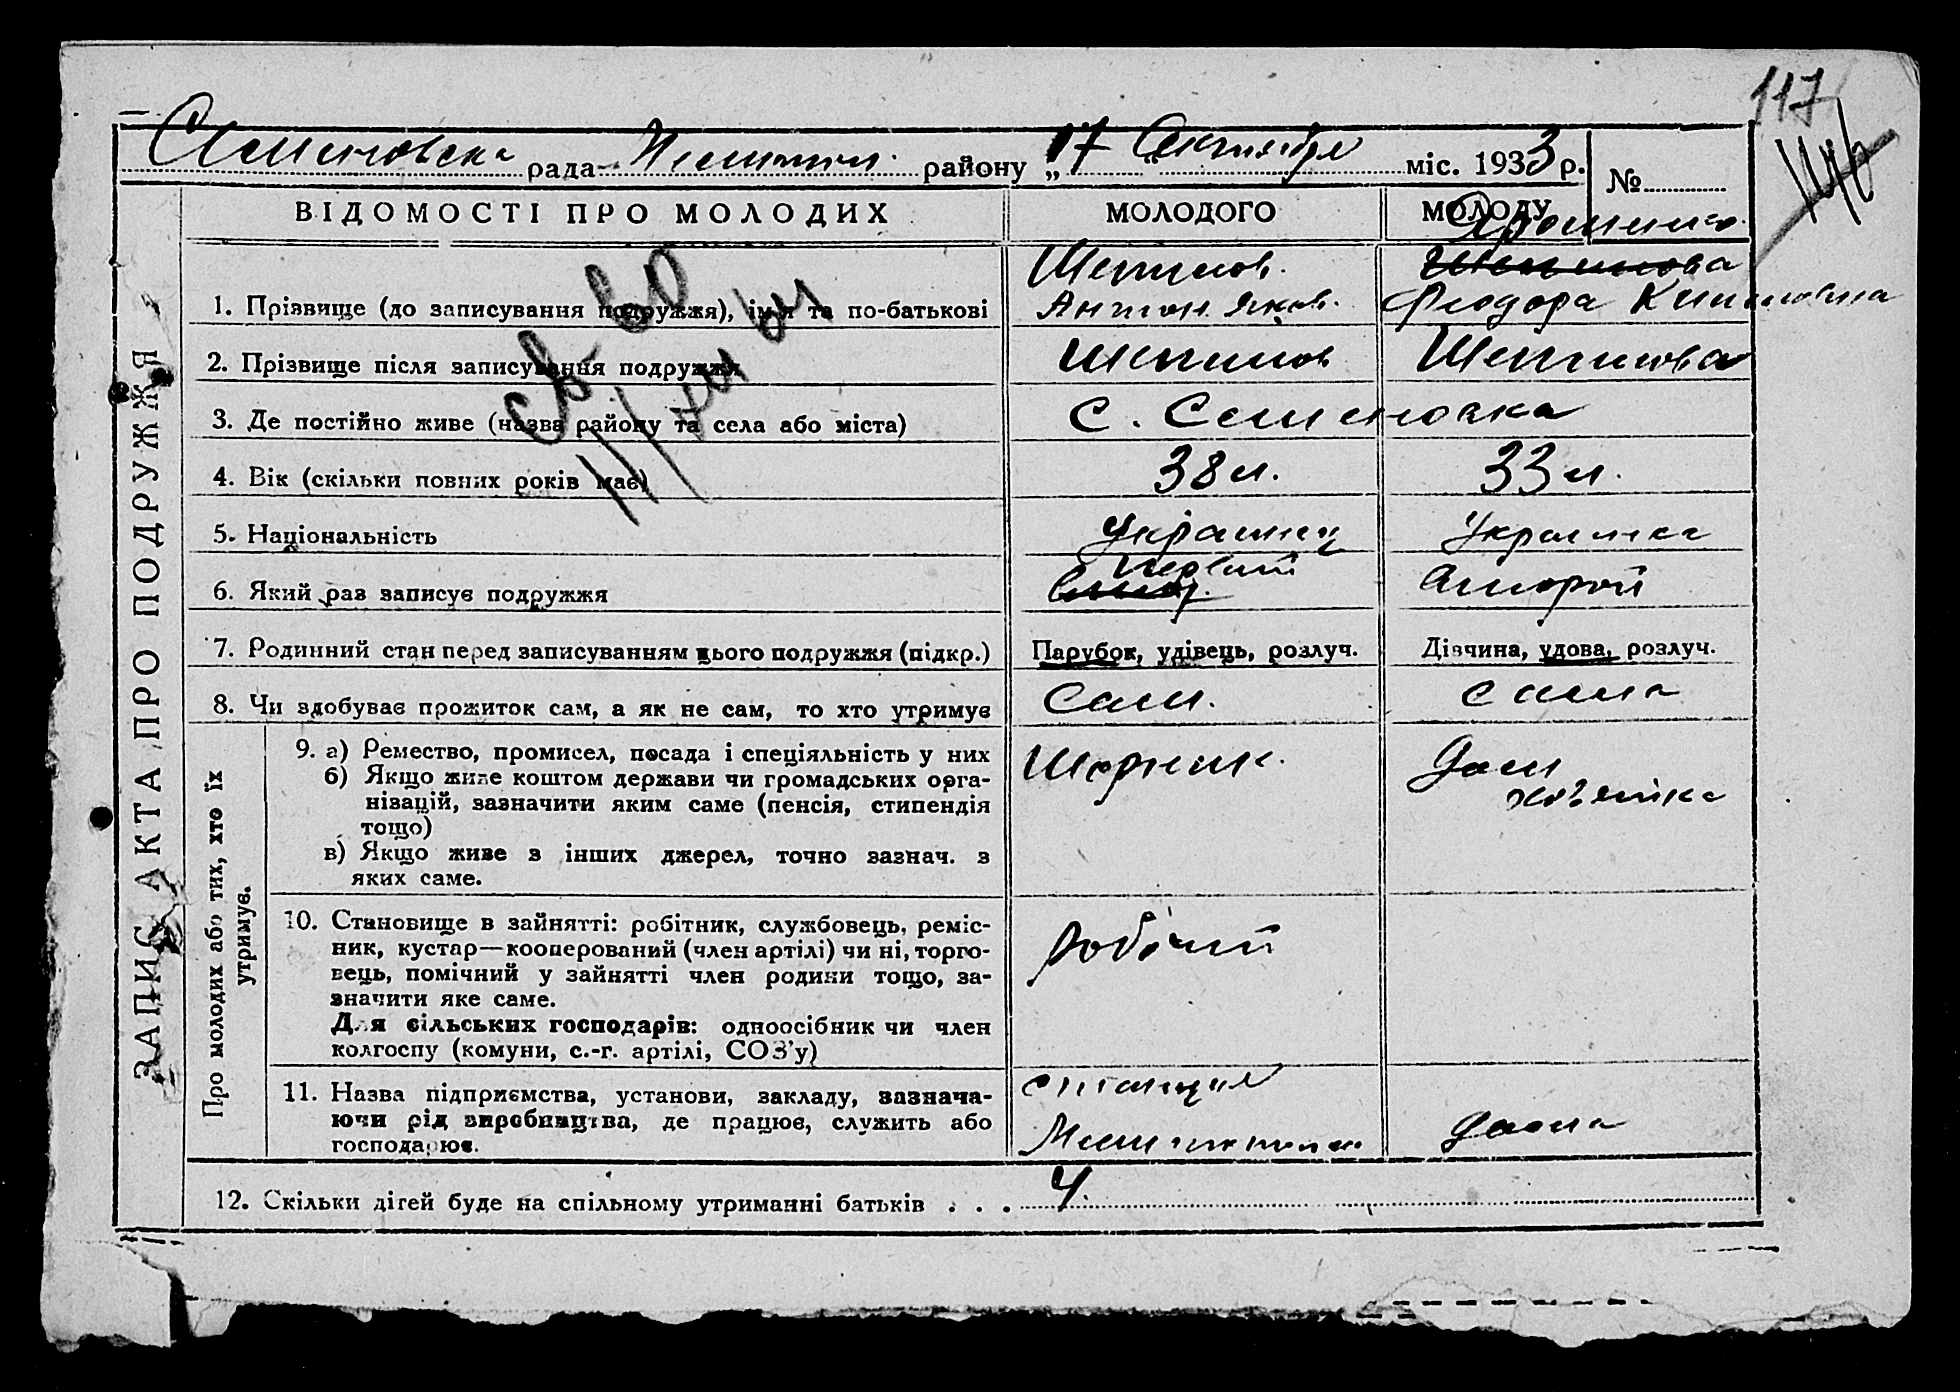 117
Семеновска рада району „17 Сентября міс. 1933 р. №
ЗАПИС АКТА ПРО ПОДРУЖЖЯ
ВІДОМОСТІ ПРО МОЛОДИХ МОЛОДОГО МОЛОДУ
1. Прізвище (до записування подружжя), ім'я та по-батькові Антон Яков. Феодора
2. Прізвище після записування подружжя
св-во
3. Де постійно живе (назва району та села або міста) с. Семеновка
4. Вік (скільки повних років має) 38 л. 33 л.
5. Національність Украинец Украинка
6. Який раз записує подружжя Первый Второй
7. Родинний стан перед записуванням цього подружжя (підкр.) Парубок, удівець, розлуч. Дівчина, удова, розлуч.
8. Чи здобуває прожиток сам, а як не сам, то хто утримує Сам. сама
Про молодих або тих, хто їх утримує.
9. а) Ремество, промисел, посада і спеціяльність у них Шорник. Дом
б) Якщо живе коштом держави чи громадських орга- хозяйка
нізацій, зазначити яким саме (пенсія, стипендія
тощо)
в) Якщо живе з інших джерел, точно зазнач. з
яких саме.
10. Становище в зайнятті: робітник, службовець, реміс-
ник, кустар—кооперований (член артілі) чи ні, торго- Робочий
вець, помічний у зайнятті член родини тощо, за-
значити яке саме.
Для сільських господарів: одноосібник чи член
колгоспу (комуни, с.-г. артілі, СОЗ'у)
11. Назва підприємства, установи, закладу, зазнача- станция
ючи рід виробництва, де працює, служить або дома
господарює.
12. Скільки дітей буде на спільному утриманні батьків . . . 4.